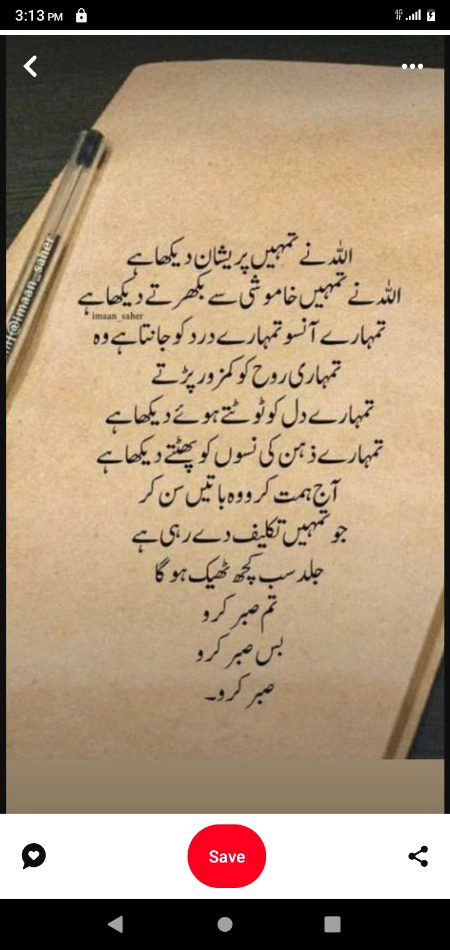 3:13 PM
اللہ نے تمہیں پریشان دیکھا ہے
اللہ نے تمہیں خاموشی سے بکھرتے دیکھا ہے
imaan_saher
تمہارے آنسو تمہارے درد کو جانتا ہے وہ
تمہاری روح کو کمزور پڑتے
تمہارے دل کو ٹوٹتے ہوئے دیکھا ہے
تمہارے ذہن کی نسوں کو پھٹتے دیکھا ہے
آج ہمت کرو وہ باتیں سن کر
جو تمہیں تکلیف دے رہی ہے
جلد سب کچھ ٹھیک ہو گا
تم صبر کرو
بس صبر کرو
صبر کرو۔
@imaan_saher
Save